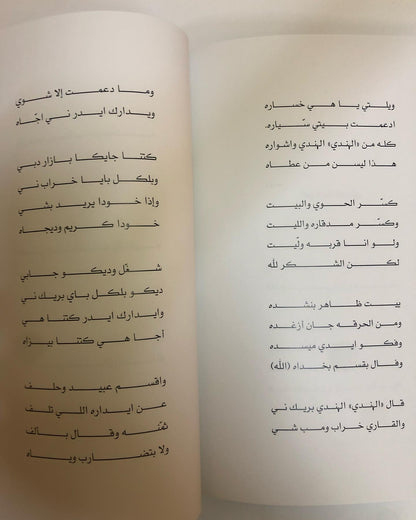 ويلتي يا هي خساره
ادعمت بيتي سّياره.
كله من «الهندي» الهندي واشواره
هذا ليسن من عطاه
كسّر الحوي والبيت
وكسّر مدقاره والليت
ولو انا قريه ولّيت
لكن الشكر لله
بيت ظاهر بنشده
ومن الحرقه جان آزغده
وفكو ايدي ميسده
وقال بقسم بخداه (الله)
قال «الهندي» الهندي بريك ني
والقاري خراب ومب شي
وما دعمت إلا شوي
ويدارك ايدر ني اجّاه
كتنا جايكا بازار دبي
وبلكل بايا خراب ني
وإذا خودا يريد بشي
خودا كريم وديجاه
شغّل وديكو جابي
ديكو بلكل باي بريك ني
وايدارك ايدر كتنا هي
آجا هي كتنا بيزاه
واقسم عبيد وحلف
عن ايداره اللي تلف
ثمّنه وقال بآلف
ولا بتضارب وياه